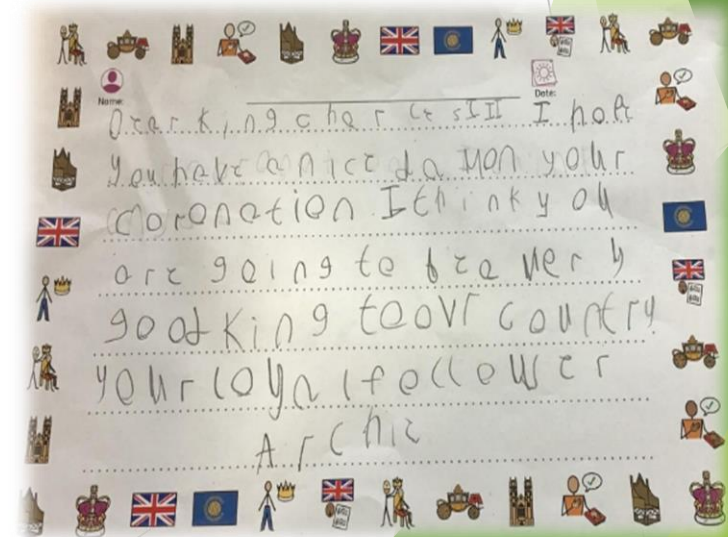 Name:
Date:
Dear King Charles III I hope
you have a nice da won your
Coronation I think you
are going to be a very
good King to our country
your loyal follower
Archie